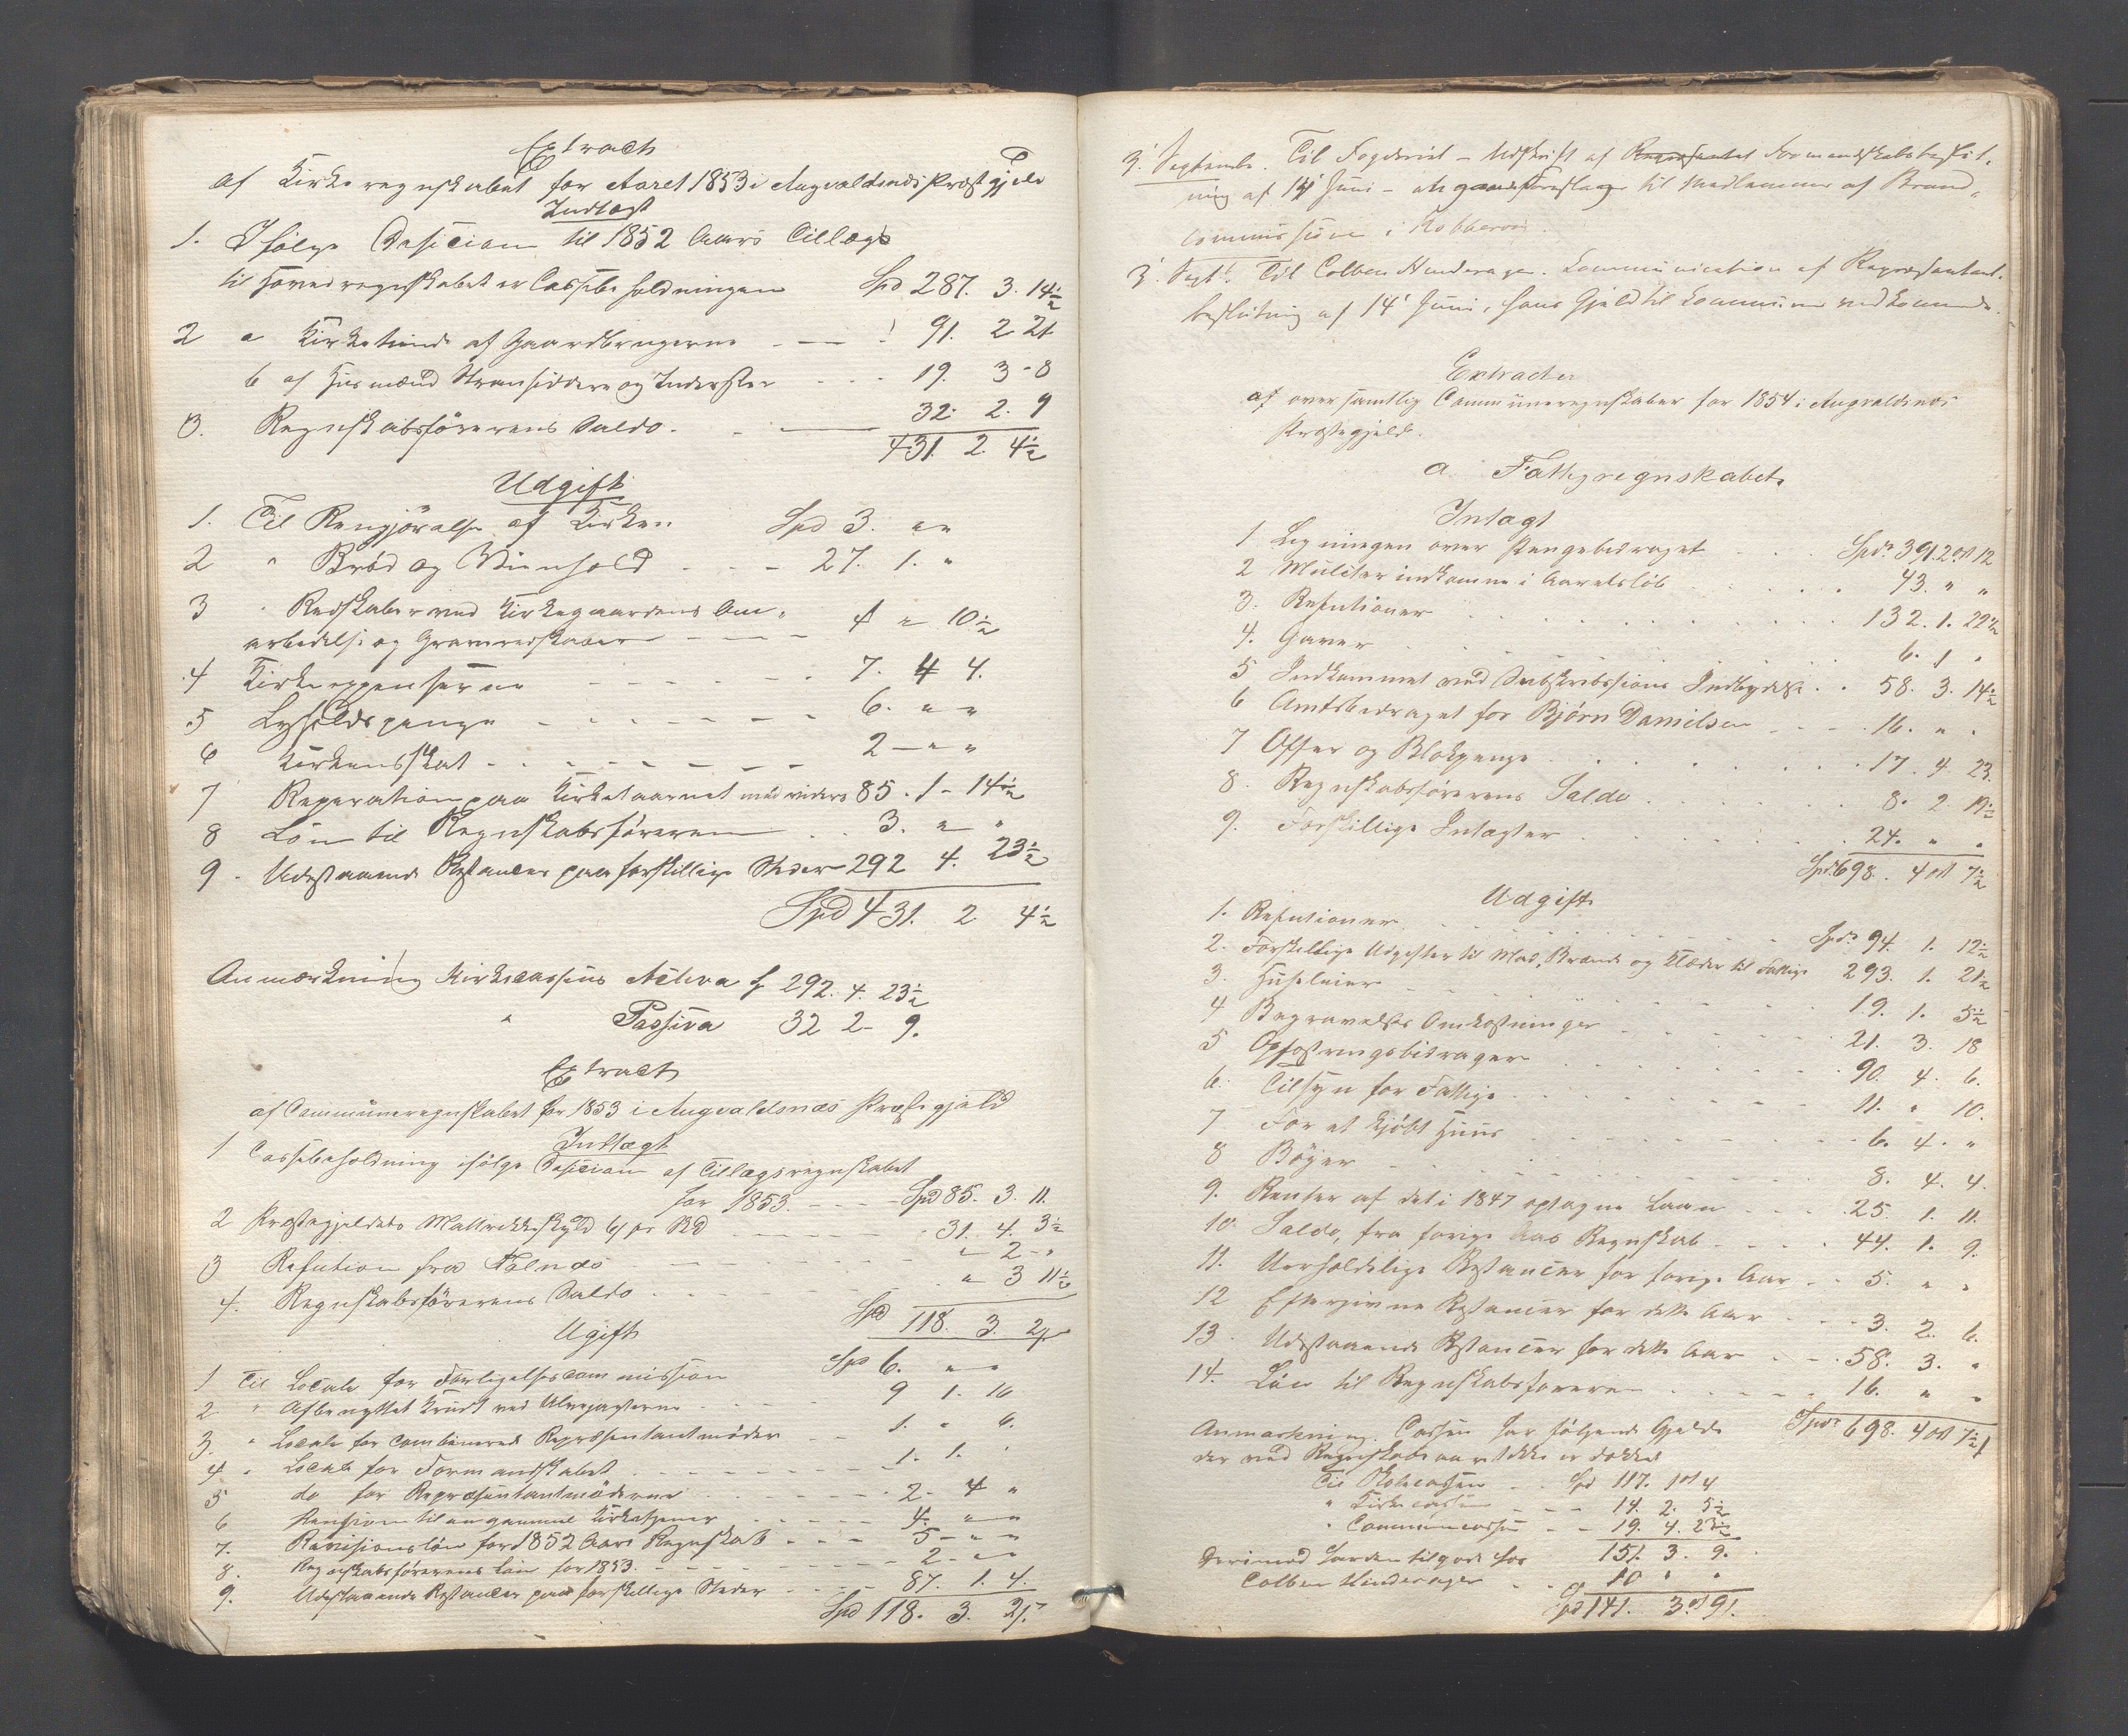 Extract
af Kirkeregnskabet for Aaret 1853 i Augvaldsnds Præstegjeld
Indtægt
1. Ifølge Desicion til 1852 Aars Tillægs
til Hovedregnskabet er Cassebeholdningen Spd 287. 3. 14½
2 a Kirketiende af Gaardbrugerne - - - 91. 2 21
b af Husmænd Strandsiddere og Inderster - - - 19. 3 - 8
3. Regnskabsførerens Saldo. - - 32. 2. 9
431. 2. 4½
Udgift
1. Til Rengjørelse af Kirken Spd 3. " "
2 " Brød og Vienhold - - - 27. 1. "
3 " Redskaber ved Kirkegaardens Om-
arbeidelse og Gravredskaber - - - 4 " 10½
4 Kirkeexpenserne - - - 7. 4 4.
5 Lysholdspenge - - - 6. " "
6 Kirkensskat - - - 2 - " "
7 Reparation paa Kirketaarnet med videre 85. 1 - 14½
8 Løn til Regnskabsføreren - - 3. " "
9. Udestaaende Restancer paa forskillige Steder 292 4. 23½
Spd 431. 2. 4½
Anmærkning Kirkecassens Activa 292. 4. 23½
" Passiva 32 2 - 9.
Extract
af Communeregnskabet for 1853 i Augvaldsnæs Præstegjæld
Indtægt
1 Cassebeholdning ifølge Desicion af Tillægsregnskabet
for 1853. - - - Spd 85. 3. 11.
2 Præstegjeldets Matrikkelskyld 6/ pr RD - - - 31. 4. 3½
3 Refution fra - - - " 2 - "
4. Regnskabsførerens Saldo - - - " 3 11½
Spd 118. 3. 2
Ugift
1 Til Locale for Forligelsescommission Spd 6. " "
2 " Afbenyttet Krudt ved - - - 9 1. 16
3. " Locale for combinerede Repræsentantmøder - - 1. " 6.
4 " Locale for Formandskabet - - - 1. 1. "
5 do for Repræsentantmøderne - - - 2. 4 "
6 Pension til en gammel Kirketjener - - - 4. " "
7. Revisionsløn for 1852 Aars Regnskab - - - 5 - " "
8. Regnskabsførerens løn for 1853. - - - 2 - " "
9. Udestaaende Restancer paa forskillige Steder - - - 87. 1. 4.
Spd 118. 3. 2
3' September. Til Fogderiet - Udskrift af Formandskabsbeslut-
ning af 14' Juni - til Medlemmer af Brand-
commissionen i
3' Septr. Til Colben Hinderager. Communication af Repræsentant-
beslutning af 14' Juni, hans Gjeld til Kommunen vedkommende.
Extracter
af over samtlig Communeregnskaber for 1854 i Augvaldsnæs
Præstegjeld.
a. Fattigregnskabet.
Intægt
1 Ligningen over Pengebidraget - - - Spdr 391. 2 ort 12
2 Mulcter indkomne i Aaretsløb - - - 43. " "
3. Refutioner - - - 132. 1. 22½
4. Gaver - - - 6. 1 "
5 Indkommet ved Subskribsions Indbydelse - - 58. 3. 14½
6 Amtsbidraget for Bjørn Danielsen - - - 16. " "
7 Offer og Blokpenge - - - 17. 4. 23.
8. Regnskabsførerens Saldo - - - 8. 2. 19½
9. Forskillige Intægter - - - 24. " "
Spdr 698. 4 ort 7½
Udgift
1. Refutioner - - - Spdr 94. 1. 12½
2. Forskellige Udgifter til Mad, Brænde og Klæder til Fattige 293. 1. 21½
3. Husleier - - - 19. 1. 5½
4 Begravelses Omkostninger - - - 21. 3. 18
5 Opfostringsbidrager - - - 90. 4. 6.
6. Tilsyn for Fattige - - - 11. " 10.
7 For et kjøbt Huus - - - 6. 4. "
8 Bøger - - - 8. 4. 4.
9. Renter af det i 1847 optagne Laan - - - 25. 1. 11.
10. Saldo, fra forige Aars Regnskab - - - 44. 1. 9.
11. Uerholdelige Restancer for forige Aar - - 5. " "
12 Eftergivne Restancer for dette Aar - - - 3. 2. 6.
13. Udestaaende Restancer for dette Aar - - - 58. 3. "
14. Løn til Regnskabsføreren - - - 16. " "
Spdr 698. 4 ort 7½
Anmærkning. Cassen har følgende Gjeld
der ved Regnskabsaaret ikke er dækket
Til Skolecassen - - Spd 117. 1 ort 4
" Kirkecassen - - - 14. 2. 5½
" Communecassen - - 19. 4. 23½
151. 3. 9.
Derimod har den tilgode hos
Colben Hinderager - - 10 " "
Spd 141. 3. ort 9.